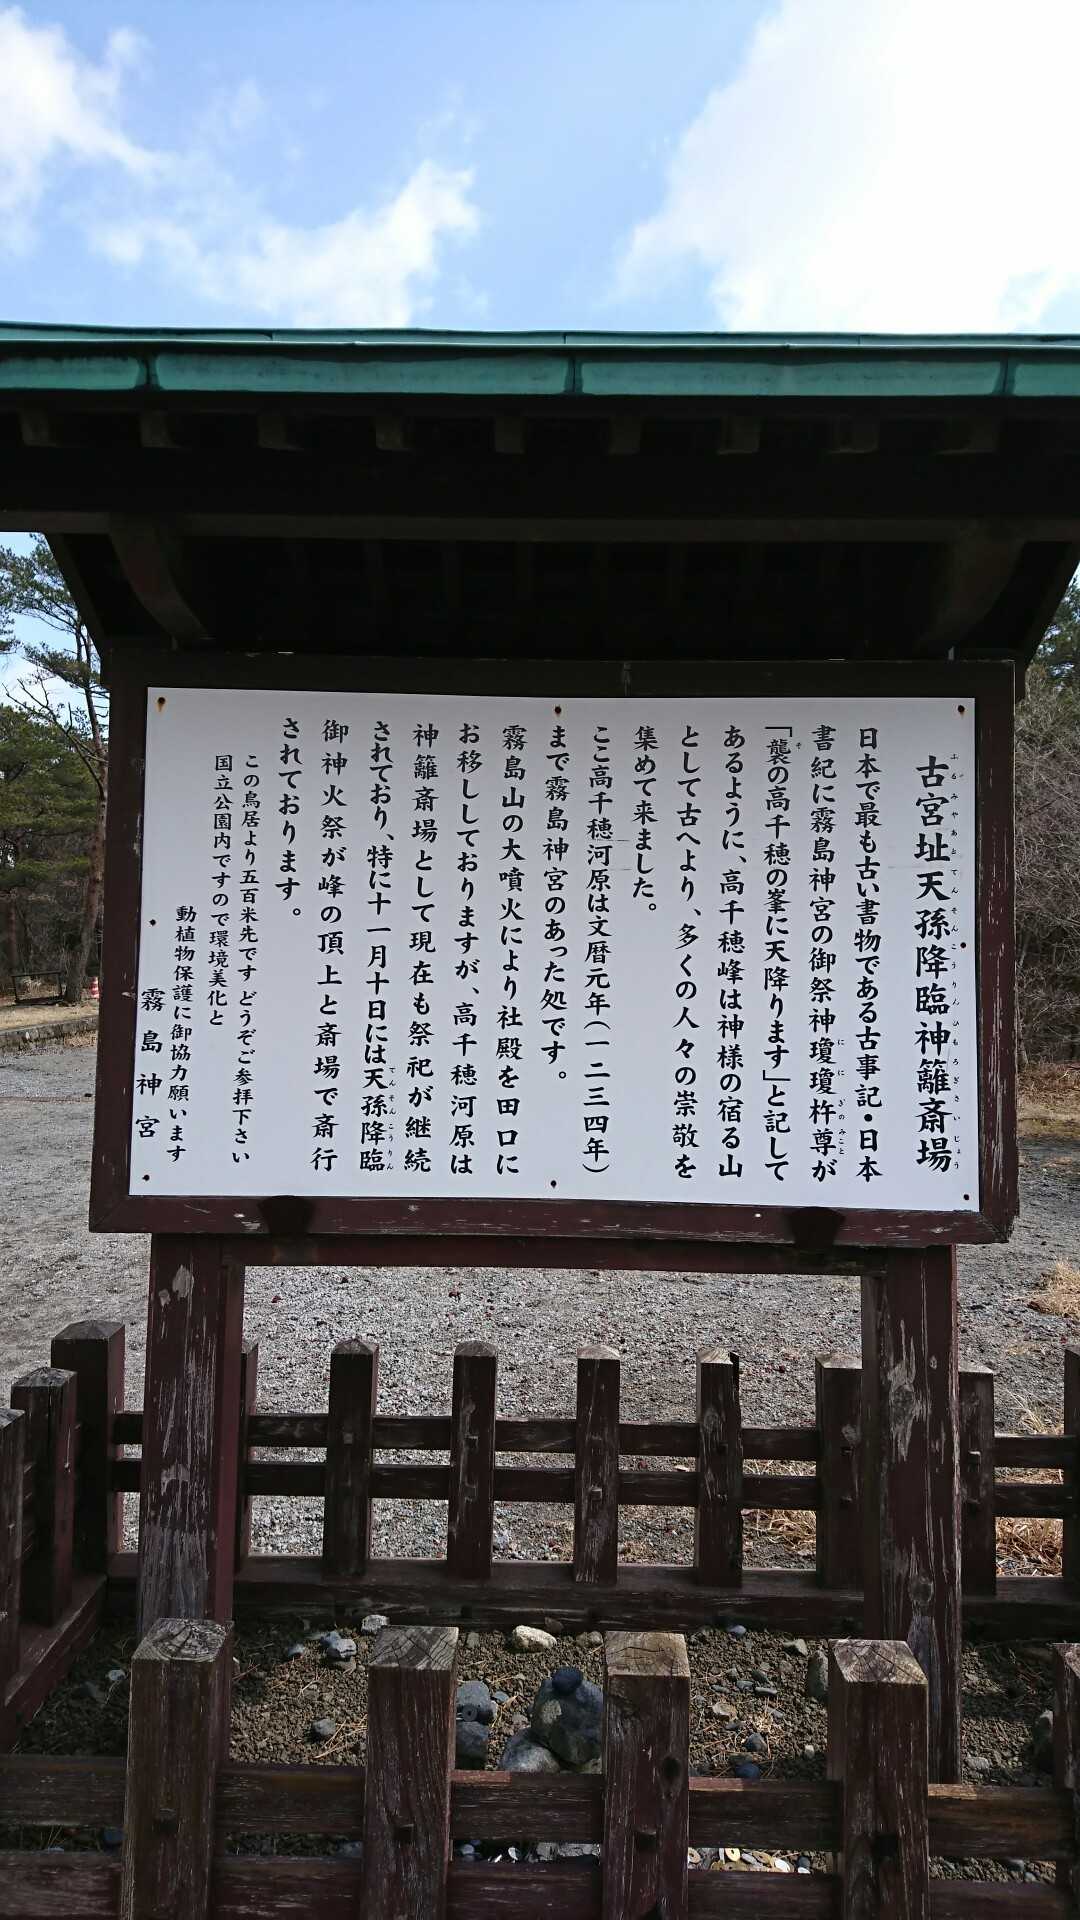 古宮址天孫降臨神籬斎場
ふるみやあとてんそんこうりんひもろぎさいじょう
日本で最も古い書物である古事記・日本
書紀に霧島神宮の御祭神瓊瓊杵尊が
ににぎのみこと
「襲の高千穂の峯に天降ります」と記して
そ
あるように、高千穂峰は神様の宿る山
として古へより、多くの人々の崇敬を
集めて来ました。
ここ高千穂河原は文暦元年(一二三四年)
まで霧島神宮のあった処です。
霧島山の大噴火により社殿を田口に
お移ししておりますが、高千穂河原は
神籬斎場として現在も祭祀が継続
されており、特に十一月十日には天孫降臨
てんそんこうりん
御神火祭が峰の頂上と斎場で斎行
されております。
この鳥居より五百米先です どうぞご参拝下さい
国立公園内ですので環境美化と
動植物保護に御協力願います
霧島神宮